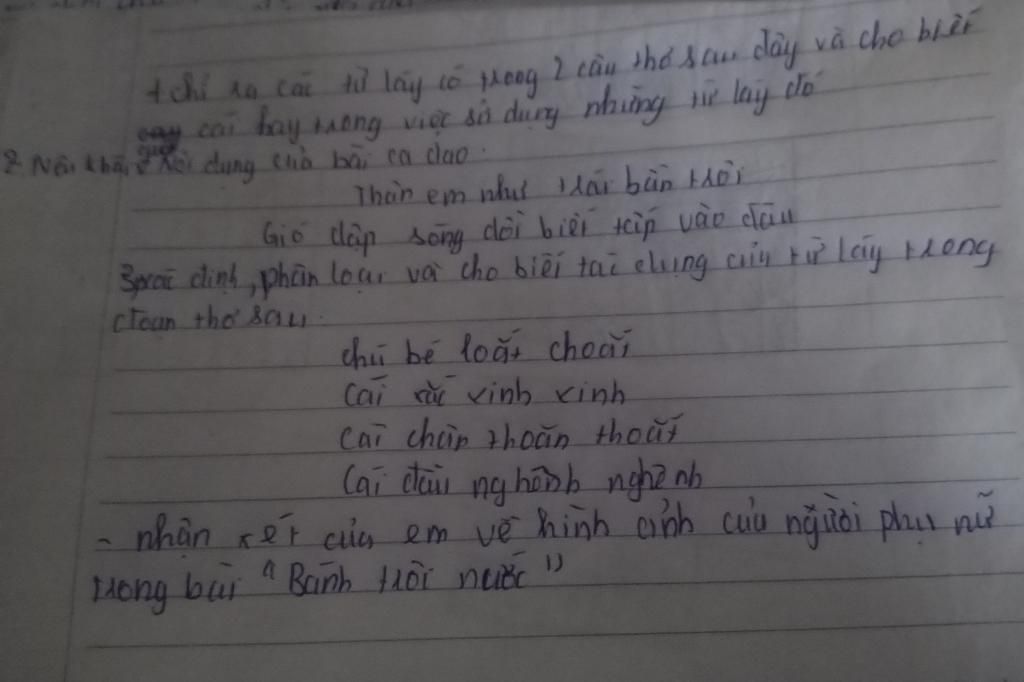 + chỉ ra các từ láy có trong 2 câu thơ sau đây và cho biết
cái hay trong việc sử dụng những từ láy đó
2. Nêu khái quát nội dung của bài ca dao.
Thân em như trái bần trôi
Gió dập sóng dồi biết tấp vào đâu
3, xác định, phân loại và cho biết tác dụng của từ láy trong
đoạn thơ sau.
chú bé loắt choắt
cái xắc xinh xinh
cái chân thoăn thoắt
Cái đầu nghênh nghênh
- nhận xét của em về hình ảnh của người phụ nữ
trong bài "Bánh trôi nước"